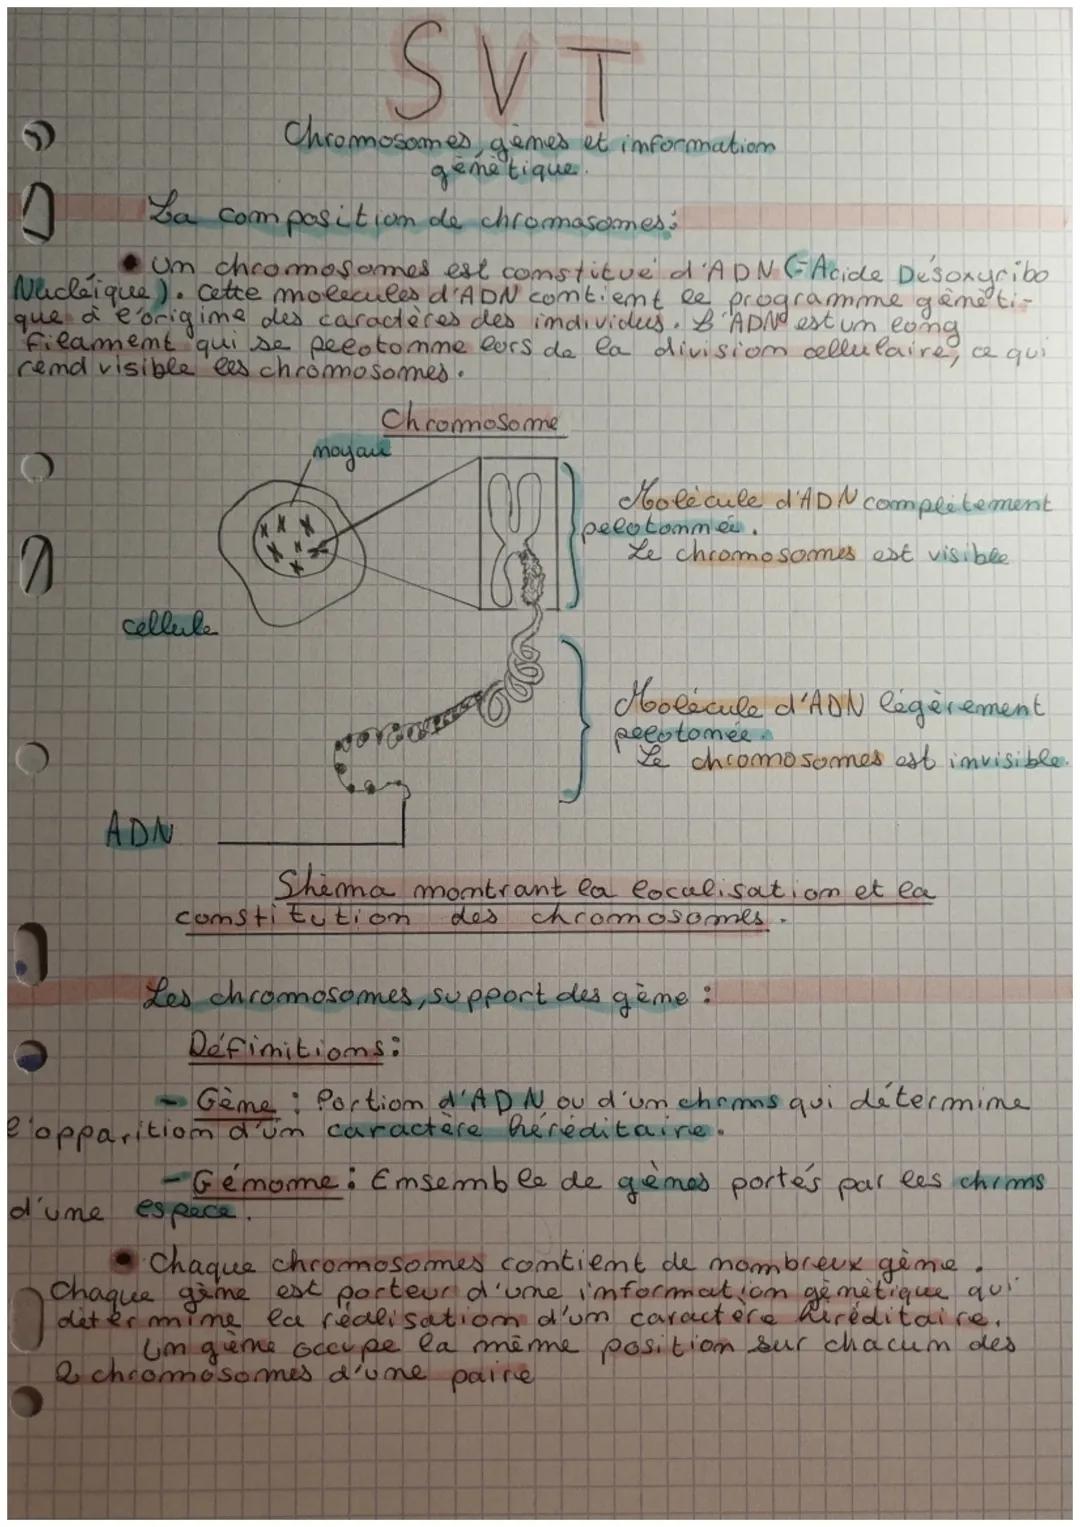 SVT
Chromosomes, gènes et information
génètique.
La composition de chromosomes:
• Un chromosomes est constitué d'ADN (=Acide Désoxyribo
Nucléique). Cette molecules d'ADN contient le programme génèti-
que à l'origine des caractères des individus. L'ADN est un long
filament qui se pelotonne lors de la division cellulaire, ce qui
rend visible les chromosomes.
Chromosome
noyau
Molécule d'ADN complètement
pelotonnée.
Le chromosomes est visible
cellule
Molécule d'ADN légèrement
pelotonée.
Le chromosomes est invisible.
ADN
Shèma montrant la localisation et la
constitution des chromosomes.
Les chromosomes, support des gène :
Définitions:
- Gène : Portion d'ADN ou d'un chrms qui détermine
l'opparition d'un caractère héréditaire.
- Génome : Ensemble de gènes portés par les chrms
d'une espece.
• Chaque chromosomes contient de nombreux gène.
Chaque gène est porteur d'une information génètique qui
détermine la réalisation d'un caractère héréditaire.
Un gène occupe la même position sur chacun des
2 chromosomes d'une paire